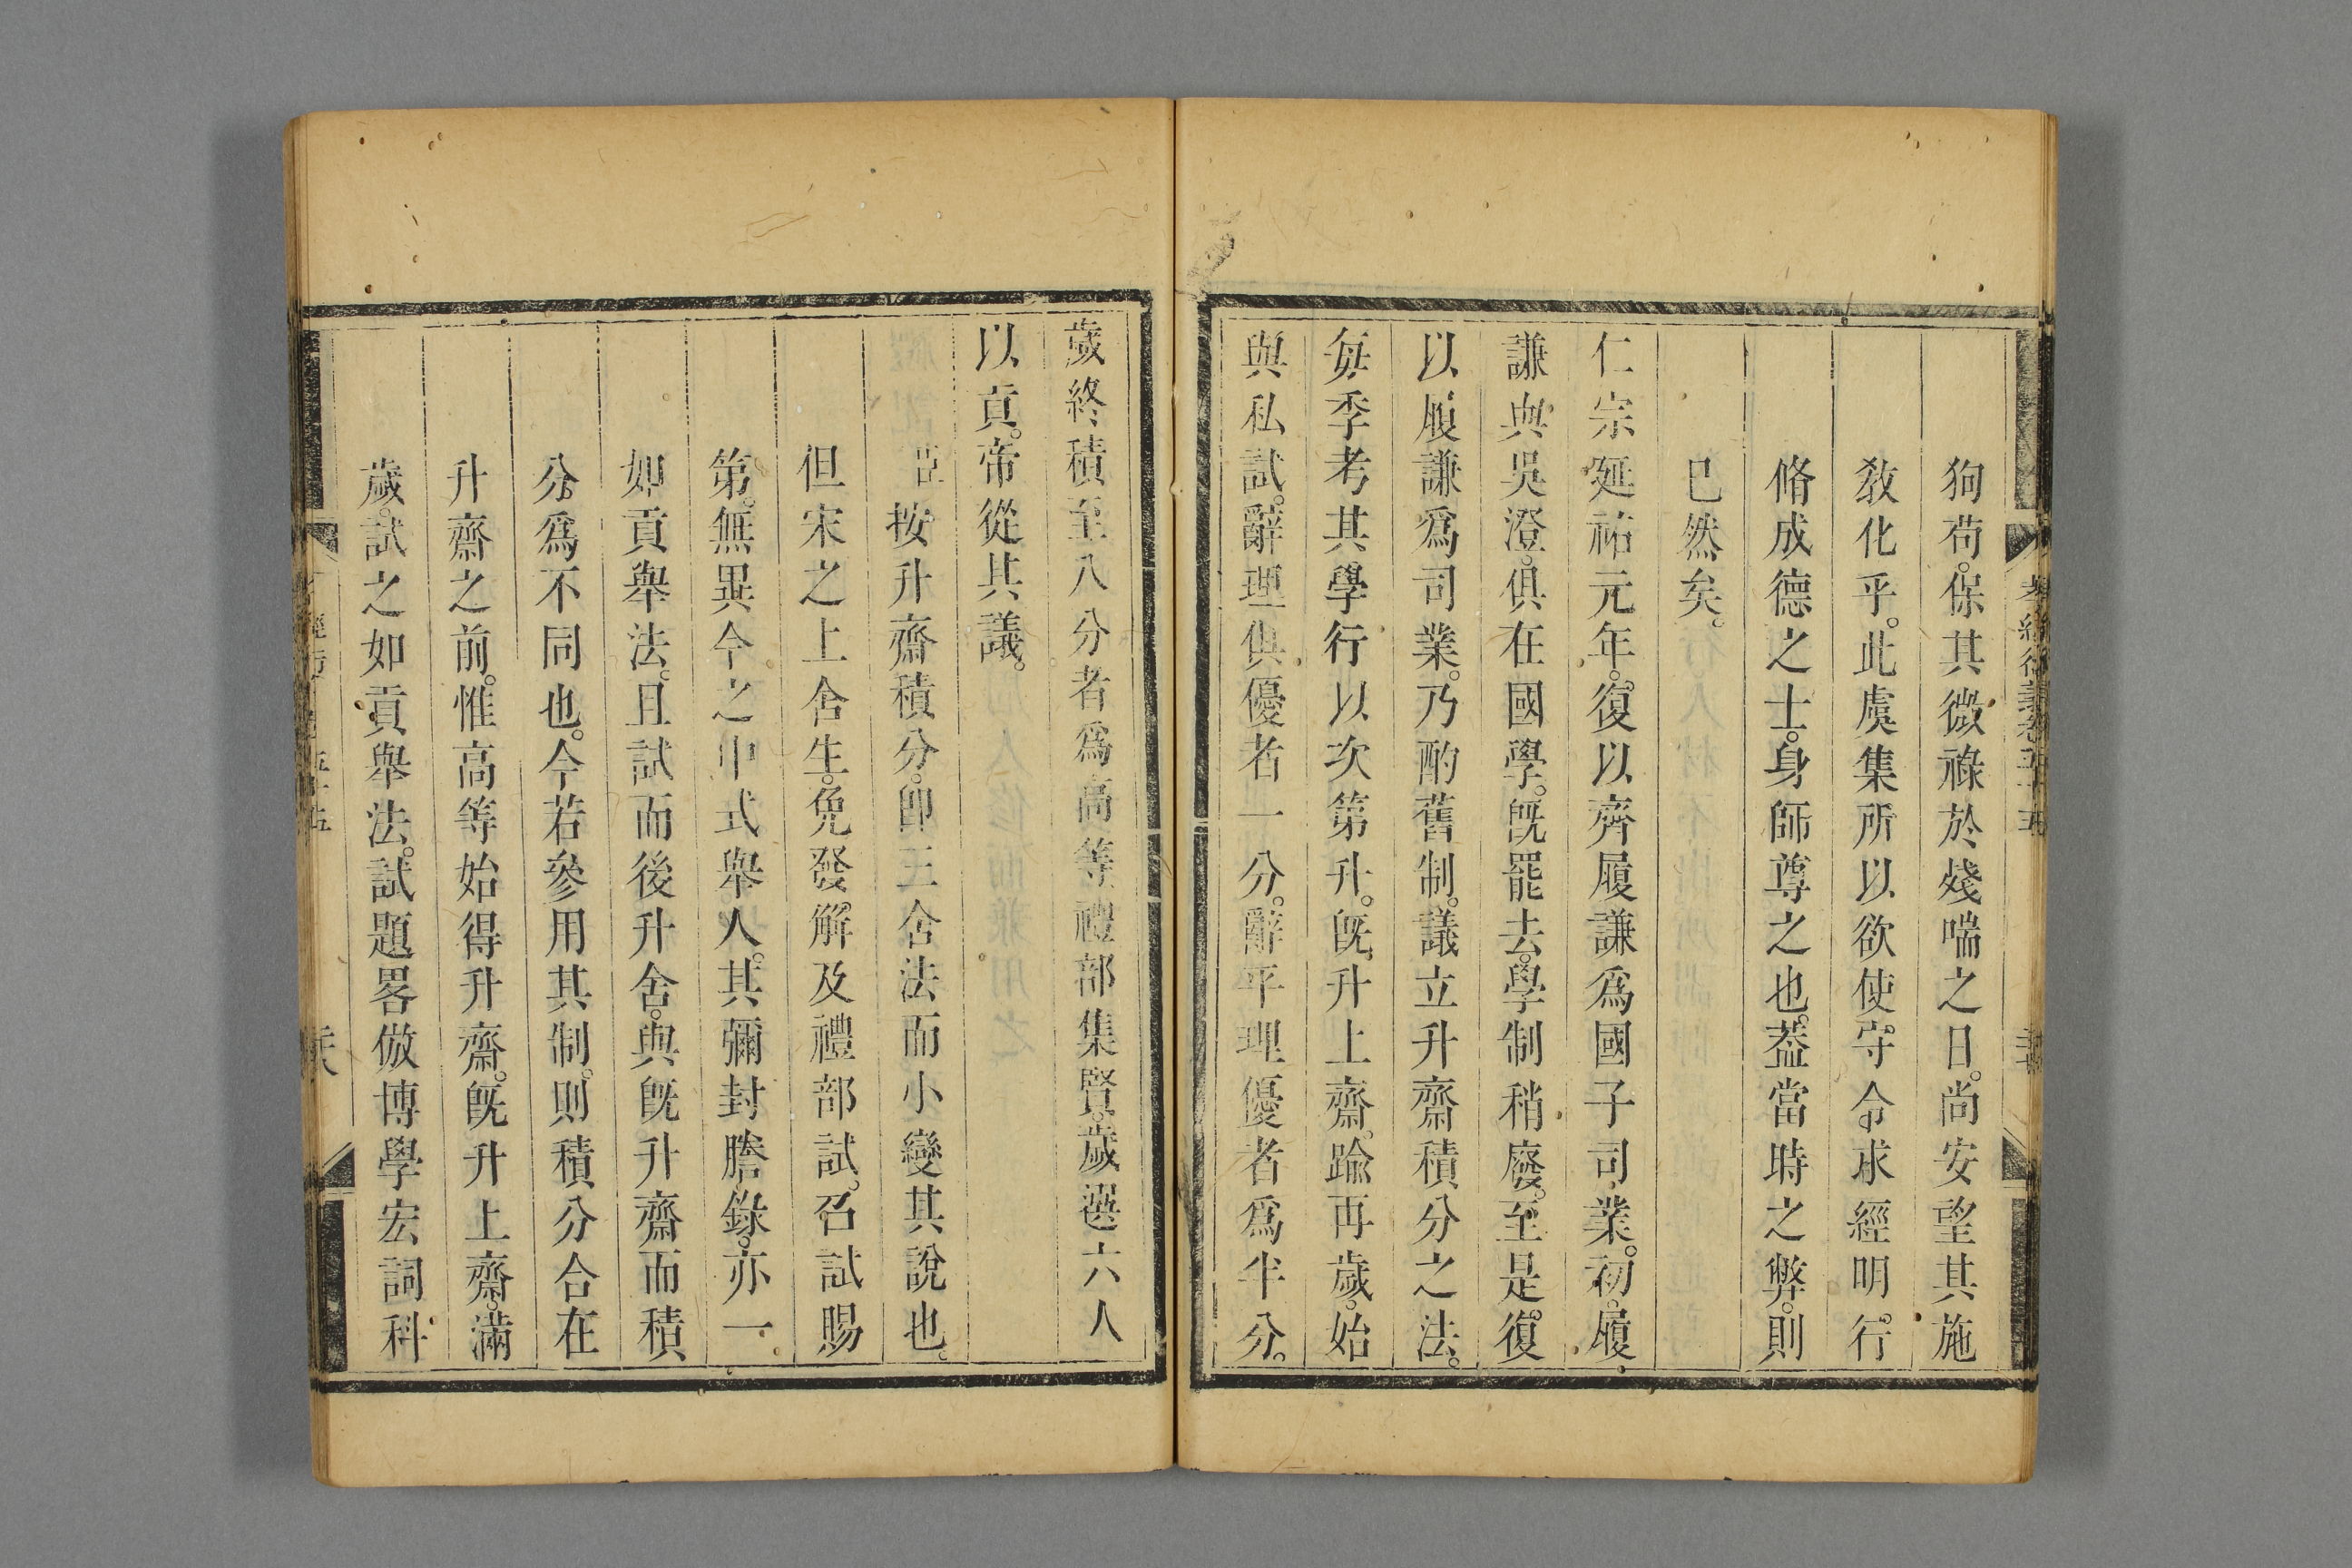 狥苟。保其微祿於殘喘之日。尚安望其施
敎化乎。此虞集所以欲使守令。求經明行
脩成德之士。身師尊之也。葢當時之弊。則
已然矣。
仁宗延祐元年。復以齊履謙爲國子司業。初。履
謙與吳澄。俱在國學。旣罷去。學制稍廢。至是。復
以履謙爲司業。乃酌舊制。議立升齋積分之法。
每季考其學行以次第升。旣升上齋。踰再歲。始
與私試。辭理俱優者一分。辭平理優者爲半分。
歲終積至八分者爲高等。禮部集賢。歲選六人
以貢。帝從其議。
臣按升齋積分。卽三舍法而小變其說也。
但宋之上舍生。免發解及禮部試。召試賜
第。無異今之中式舉人。其彌封謄錄。亦一
如貢舉法。且試而後升舍。與旣升齋而積
分爲不同也。今若參用其制。則積分合在
升齋之前。惟高等始得升齋。旣升上齋。滿
歲。試之如貢舉法。試題畧倣博學宏詞科